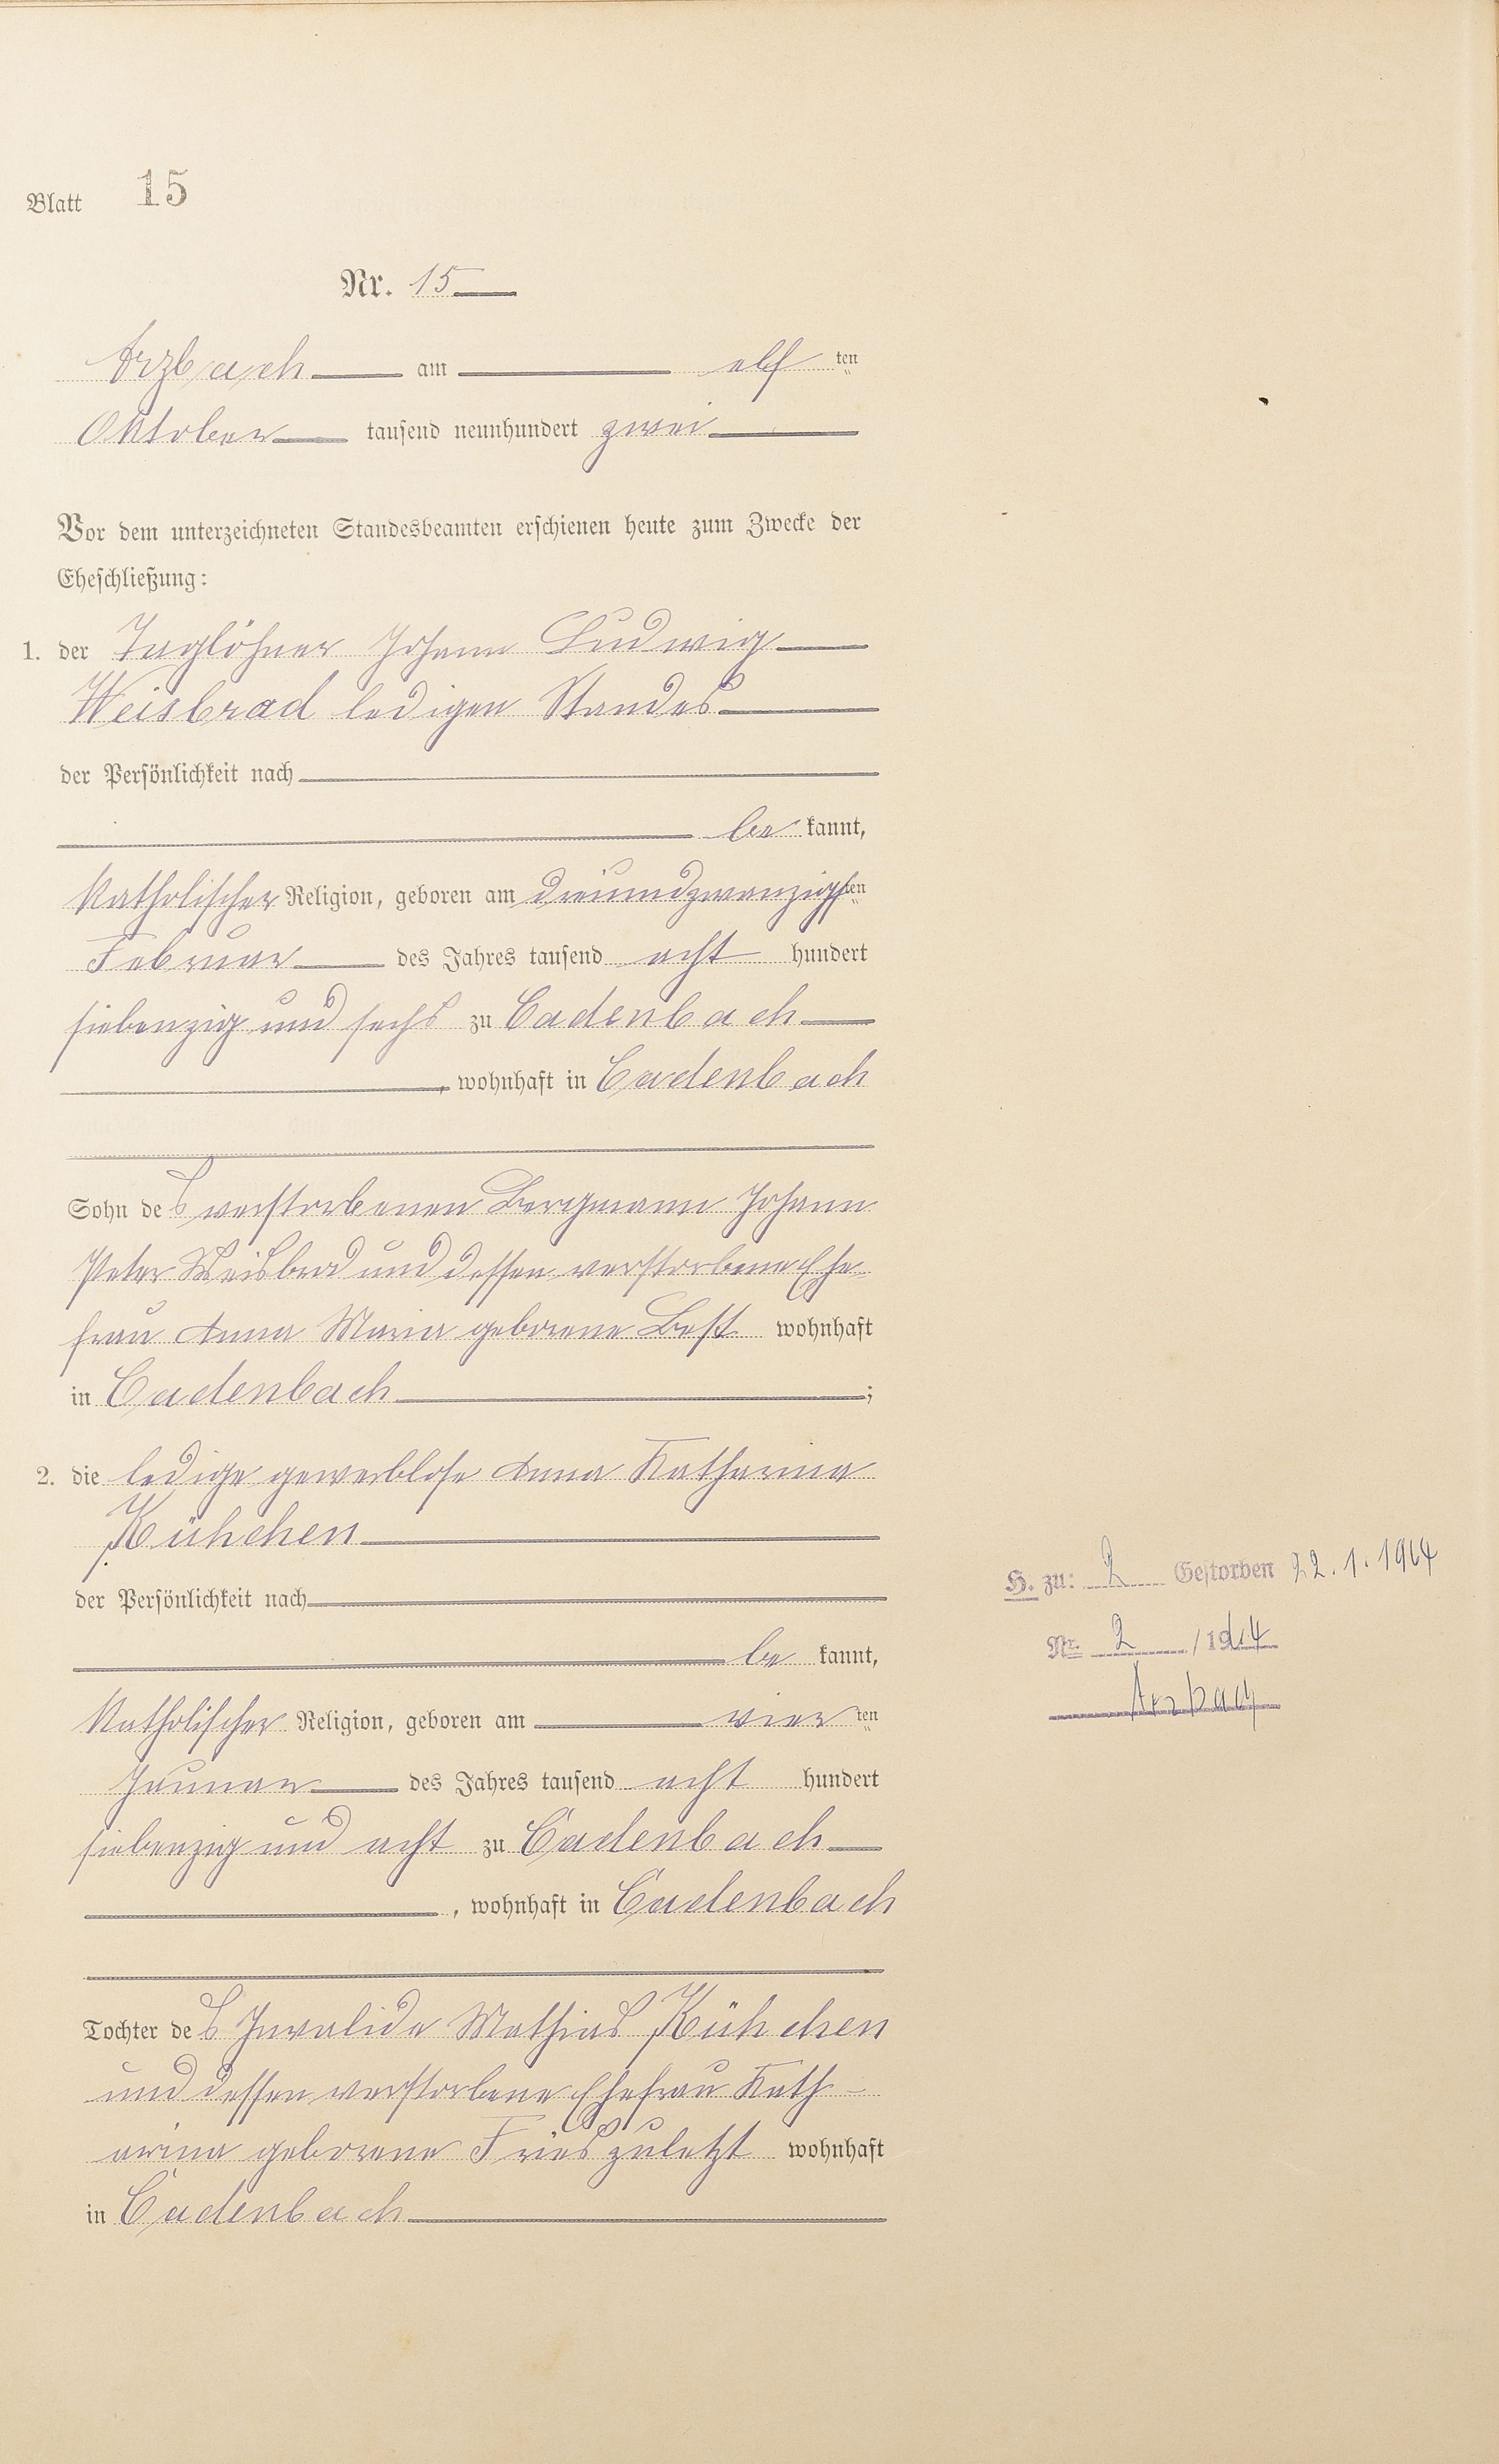 Blatt 15
Nr. 15
Arzbach am elf ten
Oktober tausend neunhundert zwei
Vor dem unterzeichneten Standesbeamten erschienen heute zum Zwecke der
Eheschließung:
1. der Taglöhner Johann Ludwig
Weisbrod ledigen Standes
der Persönlichkeit nach
be kannt,
Katholischer Religion, geboren am dreiundzwanzigsten
Februar des Jahres tausend acht hundert
siebenzig und sechs zu Cadenbach
, wohnhaft in Cadenbach
Sohn des verstorbenen Bergmann Johann
Peter Weisbrod und dessen verstorbene Ehe-
frau Anna Maria geborene Best wohnhaft
in Cadenbach ;
2. die ledige gewerblose Anna Katharina
Kühchen
der Persönlichkeit nach
be kannt,
Katholischer Religion, geboren am vier ten
Januar des Jahres tausend acht hundert
siebenzig und acht zu Cadenbach
, wohnhaft in Cadenbach
Tochter des Invalide Mathias Kühchen
und dessen verstorbene Ehefrau Kath-
arina geborene Fries zuletzt wohnhaft
in Cadenbach
H. zu: 2 Gestorben 22.1.1964
Nr. 2 /1964
Arzbach